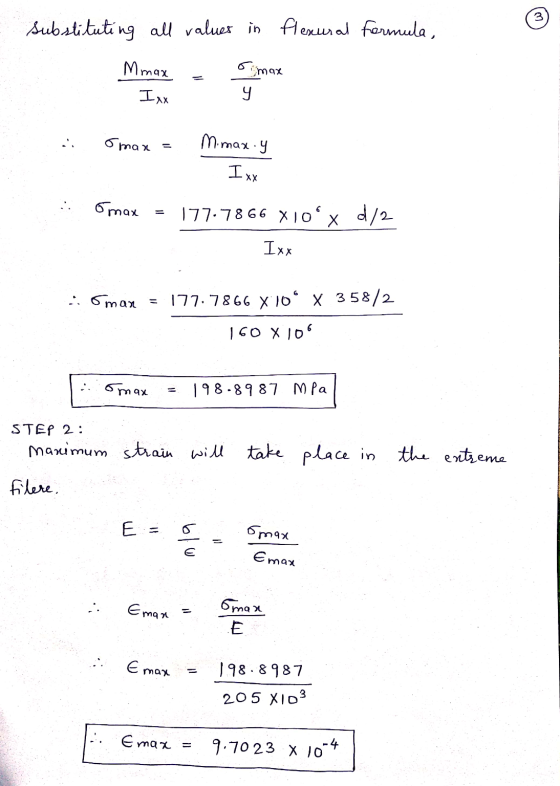 3
Substituting all values in flexural formula,
Mmax / Ixx = σmax / y
∴ σmax = Mmax·y / Ixx
∴ σmax = 177.7866 X 10⁶ X d/2 / Ixx
∴ σmax = 177.7866 X 10⁶ X 358/2 / 160 X 10⁶
∴ σmax = 198.8987 MPa
STEP 2:
Maximum strain will take place in the extreme
fibre.
E = σ / ϵ = σmax / ϵmax
∴ ϵmax = σmax / E
∴ ϵmax = 198.8987 / 205 X10³
∴ ϵmax = 9.7023 X 10⁻⁴